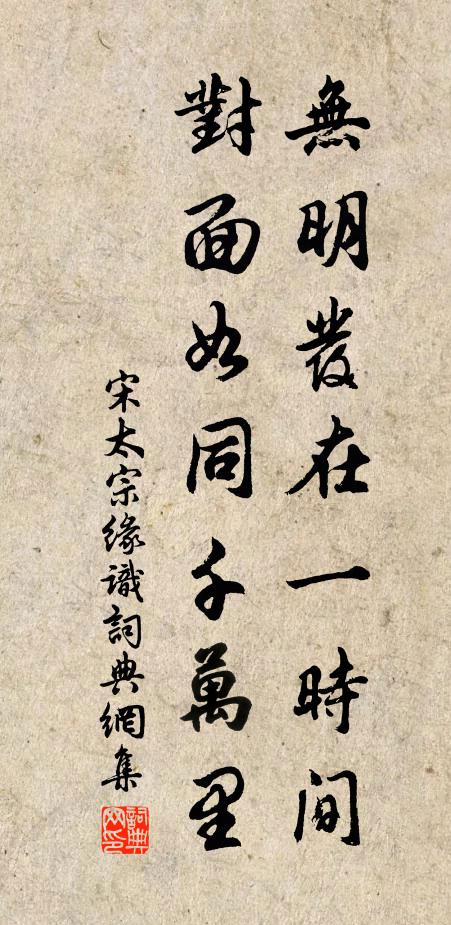 無明發在一時間
對面如同千萬里
宋太宗緣識詞典網集
詞典
網印